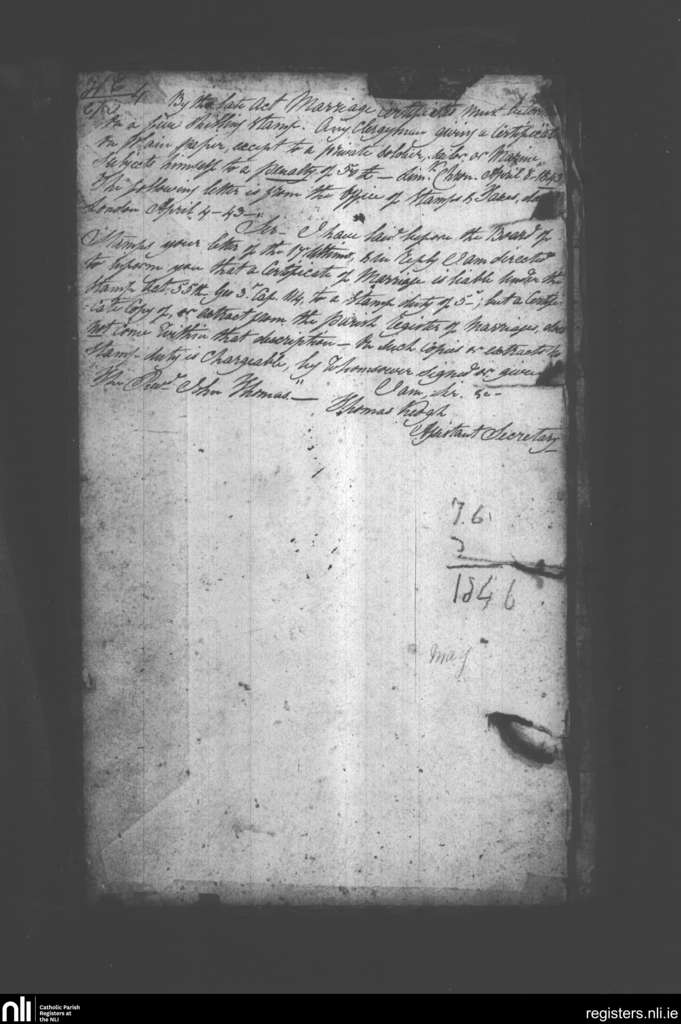 By the late Act Marriage Certificates, must be
on a five Shilling Stamp. Any Clergyman giving a Certificate
on Plain paper, except to a private Soldier, or Marine,
Subjects himself to a penalty of April 8. 1843
The following letter is from the Office of Stamps & Taxes,
London April 4 - 43 -
"Sir - I have laid before the Board of
Stamps your letter of the 17 Ultimo, & in Reply I am directed
to inform you that a Certificate of Marriage is liable under the
Stamp Act. 55th Geo 3rd Cap. 114, to a Stamp duty of 5s, but a Certifi-
cate Copy of, or extract from the parish Register of Marriages, does
not Come within that description - On such Copies or extracts
Stamp duty is Chargeable, by Whomsoever Signed or given
I am, Sir, &c -
"The Revd John Thomas" -
Thomas Keogh
Assistant Secretary
7.6
3
1846
May
nli
Catholic Parish
Registers at
the NLI
registers.nli.ie